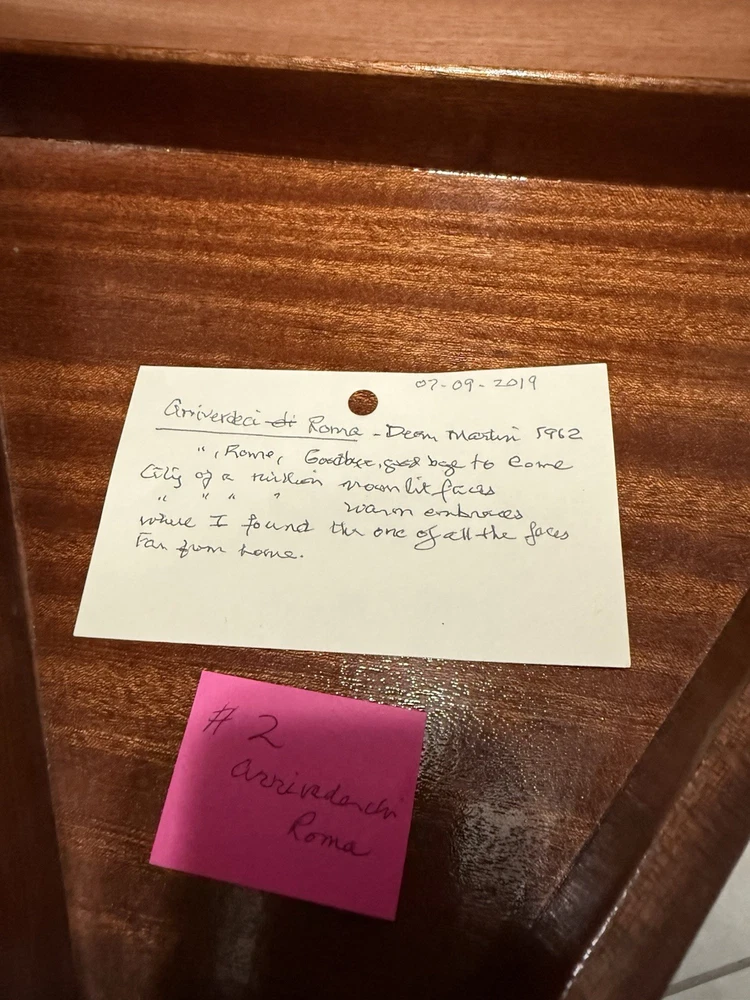 07-09-2019
Arriverdeci di Roma - Dean Martin 1962
" , Rome, Goodbye, good bye to come
City of a million moonlit faces
" " " " warm embraces
where I found the one of all the faces
Far from home.
# 2
arrivedenchi
Roma